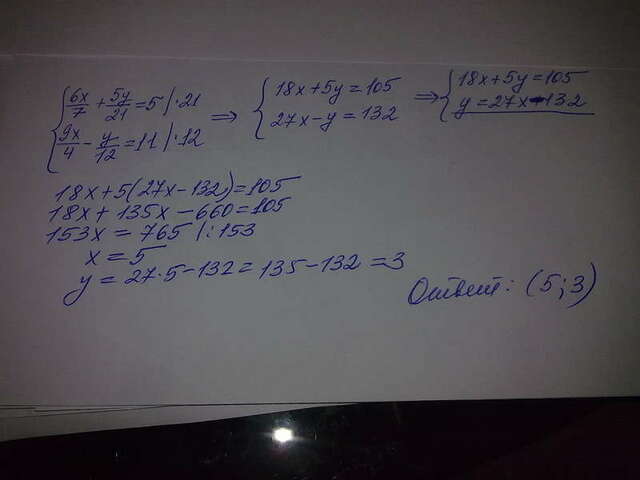 {6x/7 + 5y/21 = 5 |·21
9x/4 - y/12 = 11 |·12
=> {18x+5y=105
27x-y=132
=> {18x+5y=105
y=27x-132
18x+5(27x-132)=105
18x+135x-660=105
153x=765 |:153
x=5
y=27·5-132=135-132=3
Ответ: (5;3)